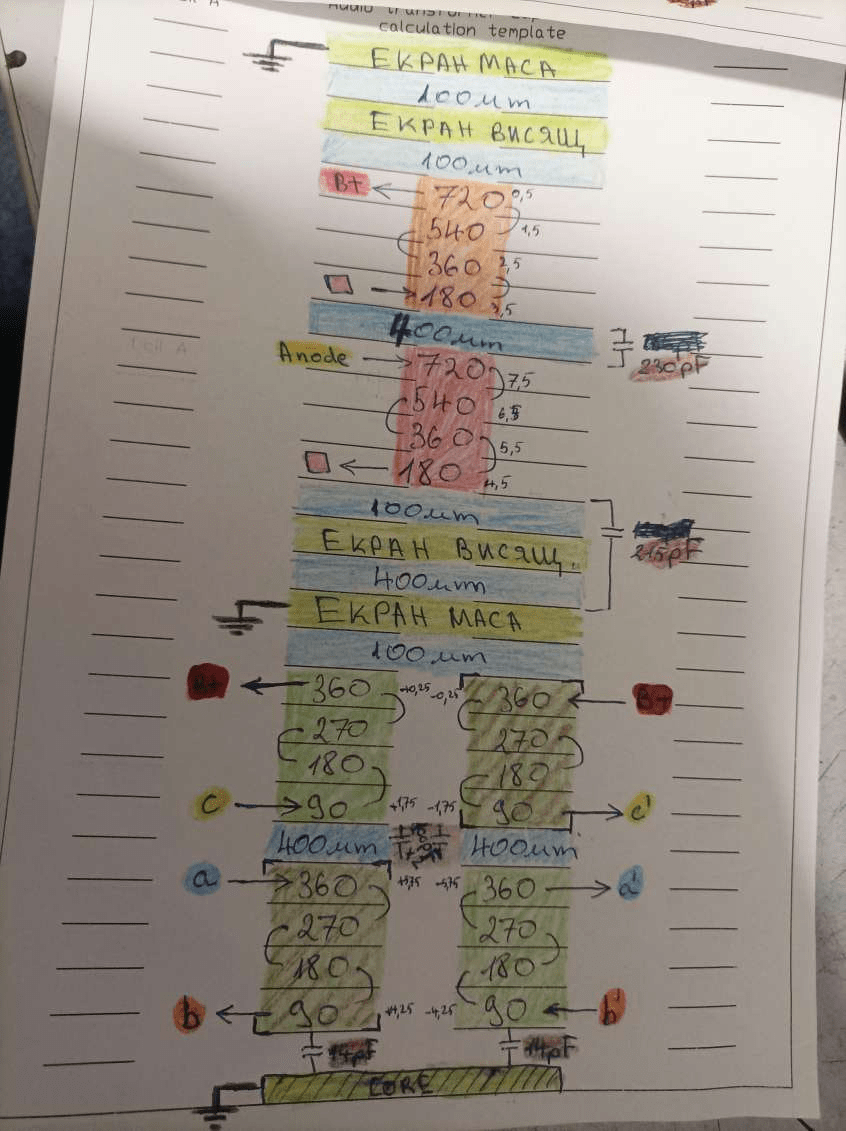 calculation template
ЕКРАН МАСА
100μm
ЕКРАН ВИСЯЩ
100μm
B+ 720 0,5
540 1,5
360 2,5
180 3,5
400μm
230pF
Anode 720 7,5
540 6,5
360 5,5
180 4,5
100μm
215pF
ЕКРАН ВИСЯЩ
400μm
ЕКРАН МАСА
100μm
B+ 360 +0,25 -0,25 360 B+
270 270
180 180
c 90 +1,75 -1,75 90 c'
400μm 400μm
a 360 +5,75 -5,75 360 a'
270 270
180 180
b 90 +4,25 -4,25 90 b'
14pF 14pF
CORE